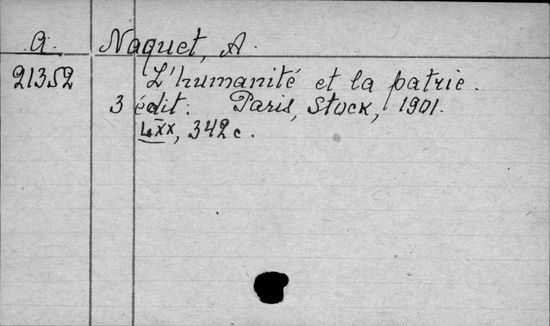 A. Naquet, A.
21352 L'humanité et la patrie.
3 édit. Paris, Stock, 1901.
LXX, 342 c.